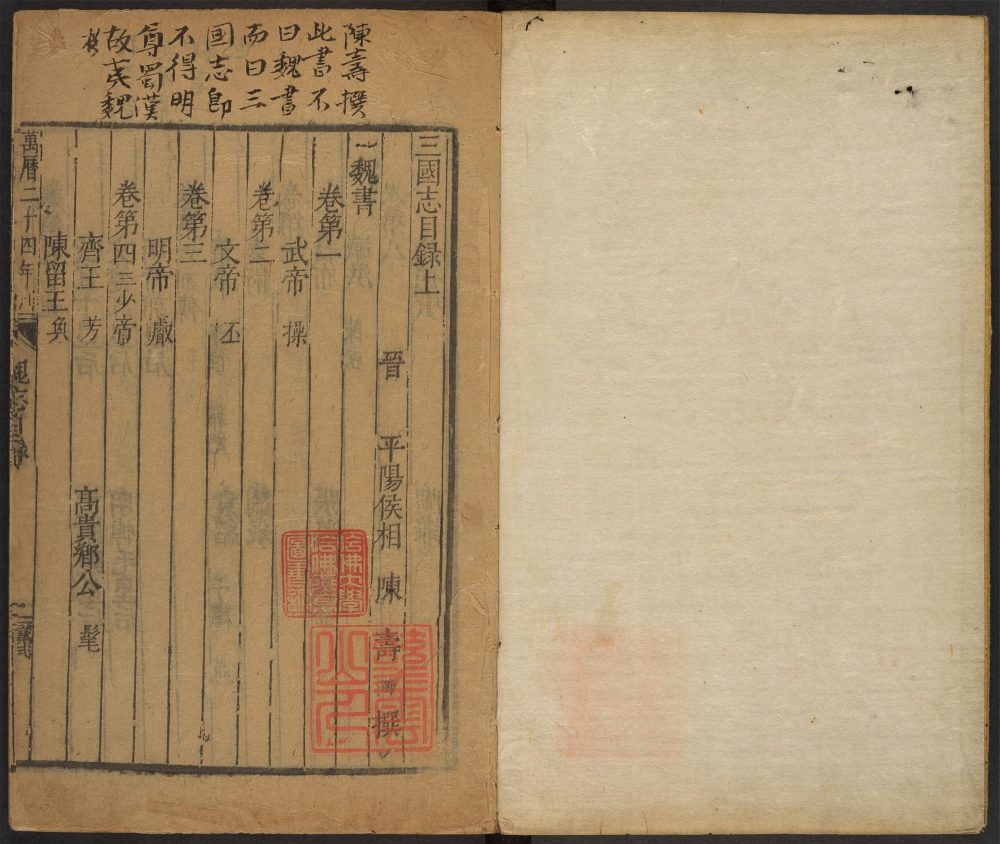 陳壽撰
此書不
曰魏書
而曰三
國志即
不得明
尊蜀漢
故夷魏
三國志目錄上
晉 平陽侯相 陳 壽 撰
魏書
卷第一
武帝 操
卷第二
文帝 丕
卷第三
明帝 叡
卷第四 三少帝
齊王 芳 髙貴鄉公 髦
陳留王 奐
萬曆二十四年刊
哈佛大學
哈佛燕京
圖書館